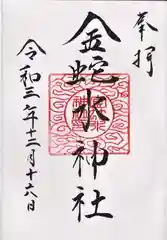 奉拝
金蛇水神社
令和三年十二月十六日